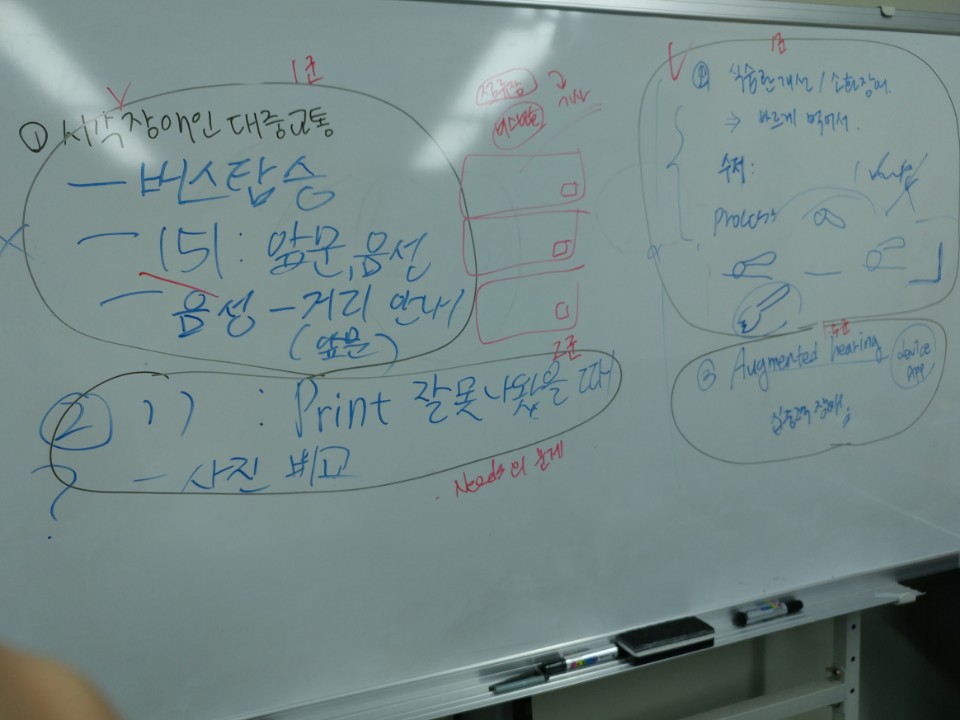 1군
① 시각장애인 대중교통
- 버스탑승
- 151: 앞문, 음성
- 음성 - 거리 안내
(앞문)
2군
② 〃 : Print 잘못나왔을 때
- 사진 비교
?
Needs의 문제
② 식습관개선 /
⇒ 바르게 먹어서
수저:
Process
③ Augmented hearing
device
App